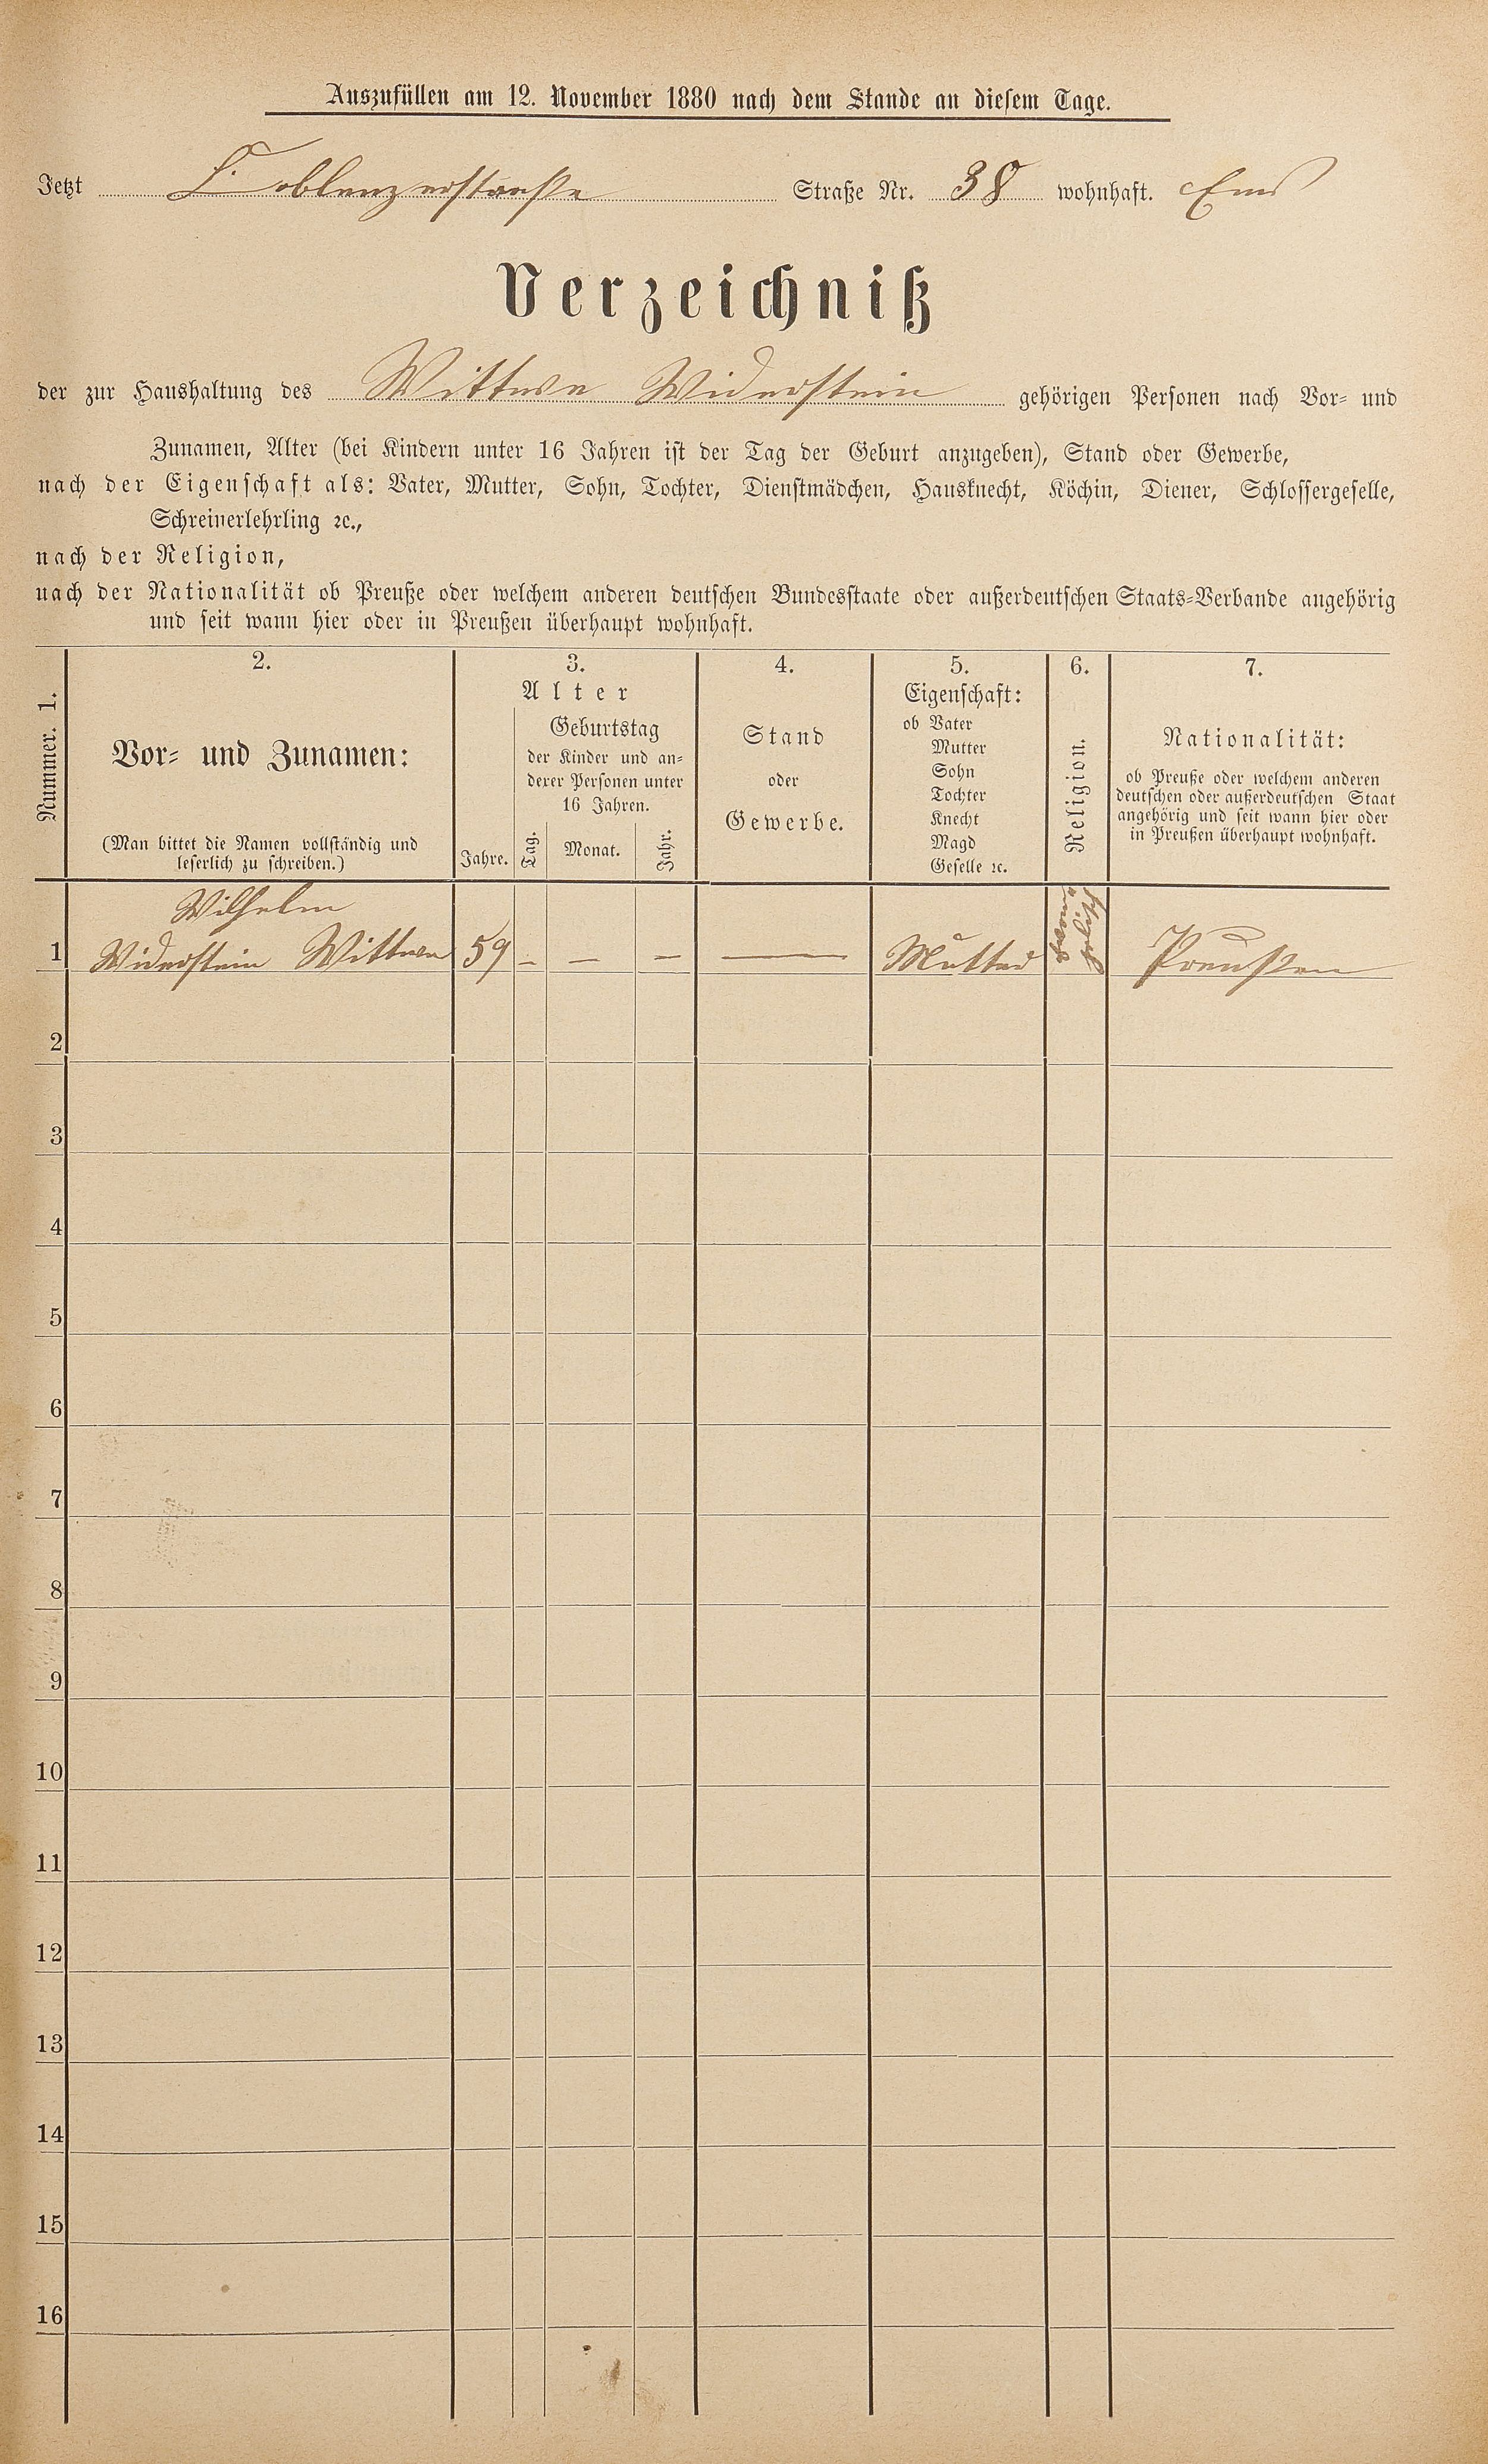 Auszufüllen am 12. November 1880 nach dem Stande an diesem Tage.
Jetzt Coblenzerstraße Straße Nr. 38 wohnhaft. Ems
Verzeichniß
der zur Haushaltung des Wittwe Widerstein gehörigen Personen nach Vor- und
Zunamen, Alter (bei Kindern unter 16 Jahren ist der Tag der Geburt anzugeben), Stand oder Gewerbe,
nach der Eigenschaft als: Vater, Mutter, Sohn, Tochter, Dienstmädchen, Hausknecht, Köchin, Diener, Schlossergeselle,
Schreinerlehrling ꝛc.,
nach der Religion,
nach der Nationalität ob Preuße oder welchem anderen deutschen Bundesstaate oder außerdeutschen Staats-Verbande angehörig
und seit wann hier oder in Preußen überhaupt wohnhaft.
Nummer. 1.
2.
Vor- und Zunamen:
(Man bittet die Namen vollständig und
leserlich zu schreiben.)
3.
Alter
Jahre.
Geburtstag
der Kinder und an-
derer Personen unter
16 Jahren.
Tag. Monat. Jahr.
4.
Stand
oder
Gewerbe.
5.
Eigenschaft:
ob Vater
Mutter
Sohn
Tochter
Knecht
Magd
Geselle ꝛc.
6.
Religion.
7.
Nationalität:
ob Preuße oder welchem anderen
deutschen oder außerdeutschen Staat
angehörig und seit wann hier oder
in Preußen überhaupt wohnhaft.
Wilhelm
1 Widerstein Wittwe 59 – – – — Mutter Preußen
2
3
4
5
6
7
8
9
10
11
12
13
14
15
16